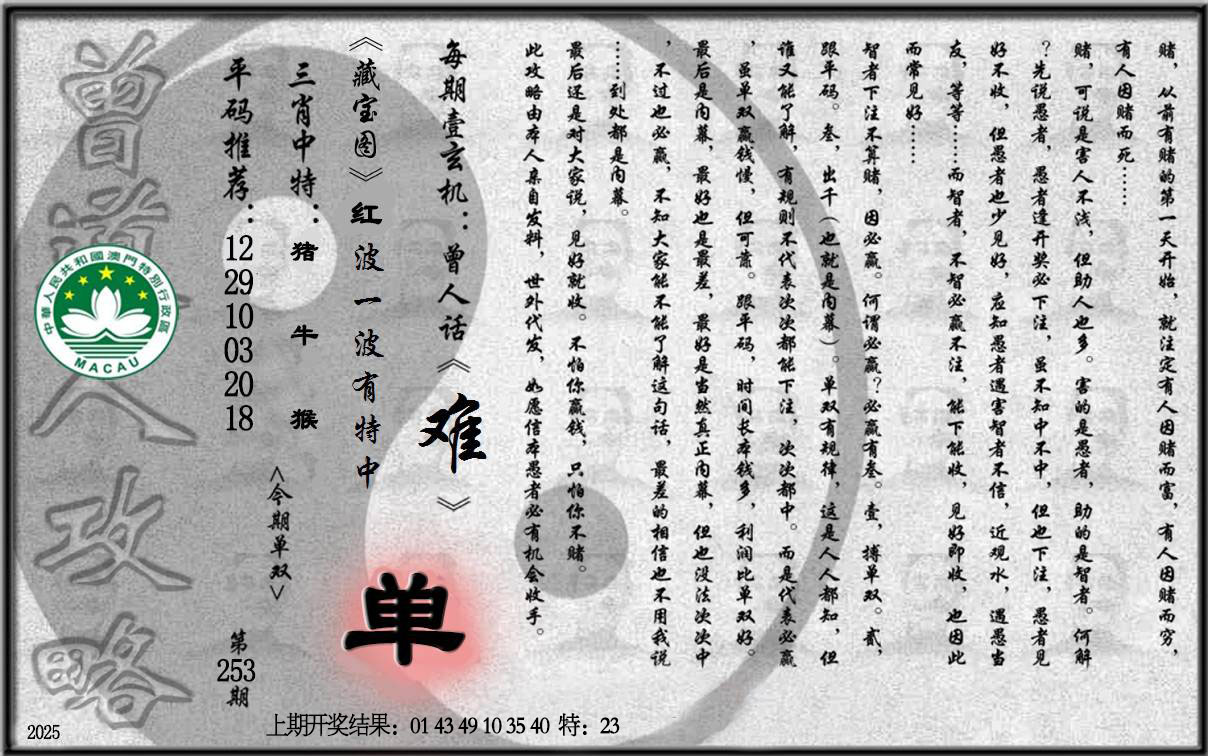 赌，从前有赌的第一天开始，就注定有人因赌而富，有人因赌而穷，
有人因赌而死……
赌，可说是害人不浅，但助人也多。害的是愚者，助的是智者。何解
？先说愚者，愚者逢开奖必下注，虽不知中不中，但也下注，愚者见
好不收，但愚者也少见好，应知愚者遇害智者不信，近观水，遇愚当
友，等等……而智者，不智必赢不注，能下能收，见好即收，也因此
而常见好……
智者下注不算赌，因必赢。何谓必赢？必赢有叁。壹，搏单双。贰，
跟平码。叁，出千（也就是内幕）。单双有规律，这是人人都知，但
谁又能了解，有规则不代表次次都能下注，次次都中。而是代表必赢
，虽单双赢钱慢，但可靠。跟平码，时间长本钱多，利润比单双好。
最后是内幕，最好也是最差，最好是当然真正内幕，但也没法次次中
，不过也必赢，不知大家能不能了解这句话，最差的相信也不用我说
……到处都是内幕。
最后还是对大家说，见好就收。不怕你赢钱，只怕你不赌。
此攻略由本人亲自发料，世外代发，如愿信本愚者必有机会收手。
每期壹玄机：曾人话《难》
《藏宝图》红波一波有特中
单
三肖中特：猪 牛 猴
<今期单双>
平码推荐：12 29 10 03 20 18
第253期
曾道人攻略
中華人民共和國澳門特別行政區
MACAU
上期开奖结果：01 43 49 10 35 40 特：23
2025